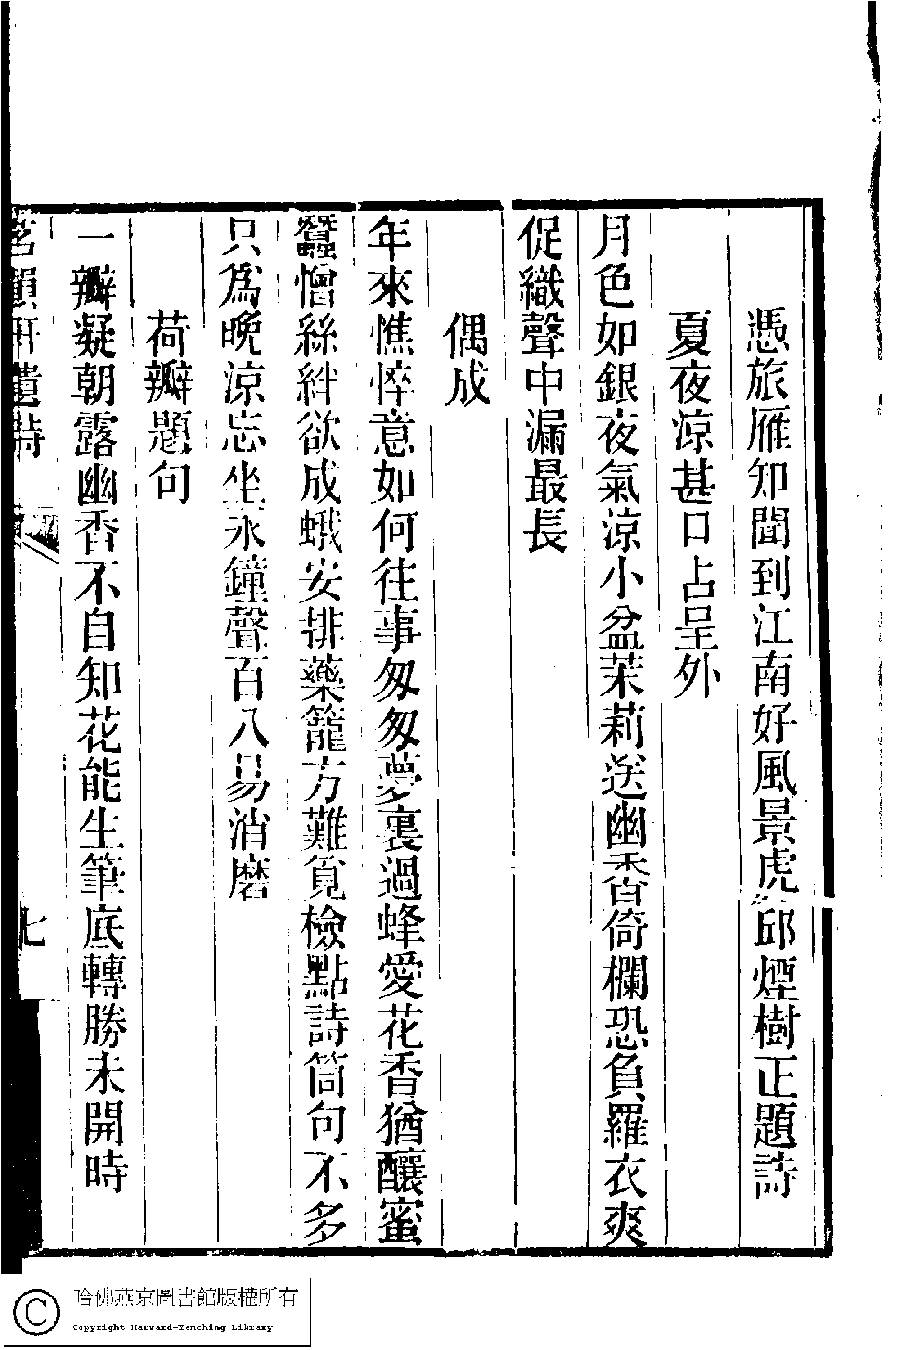 憑旅雁知聞到江南好風景虎邱煙樹正題詩
夏夜涼甚口占呈外
月色如銀夜氣涼小盆茉莉送幽香倚欄恐負羅衣爽
促織聲中漏最長
偶成
年來憔悴意如何往事匆匆夢裏過蜂愛花香猶釀蜜
蠶憎絲絆欲成蛾安排藥籠方難覓檢點詩筒句不多
只爲晚涼忘坐永鐘聲百八易消磨
荷瓣題句
一瓣凝朝露幽香不自知花能生筆底轉勝未開時
茗韻軒遺詩
七
哈佛燕京圖書館版權所有
Copyright Harvard-Yenching Library